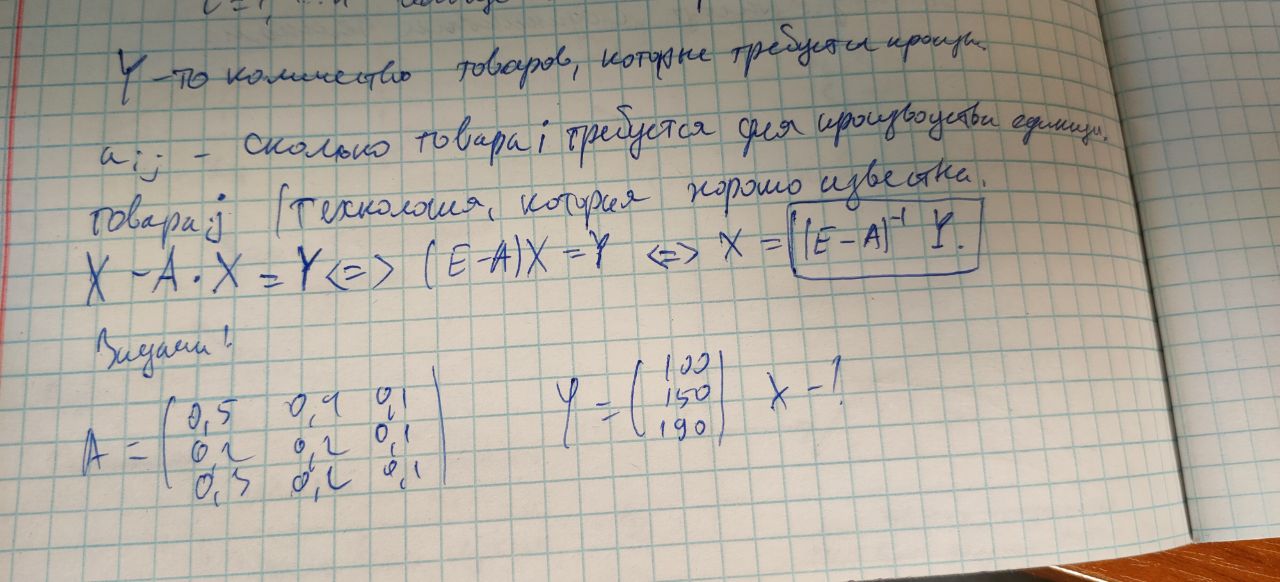 Y – то количество товаров, которые требуется произв.
a i j – сколько товара i требуется для производства единицы.
товара j (технология, которая хорошо известна.
X – A · X = Y <=> (E – A)X = Y <=> X = (E – A)⁻¹ Y.
A = ( 0,5 0,4 0,1
0,2 0,2 0,1
0,3 0,2 0,1 )
Y = ( 100
150
190 ) X – ?